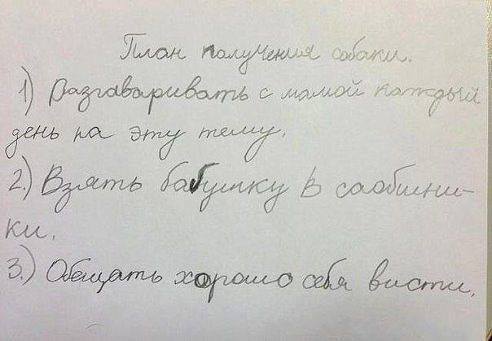 План получения собаки.
1.) Разгаваривать с мамой каждый
день на эту тему.
2.) Взять бабушку в саобшни-
ки.
3.) Обещать хорошо себя висти.